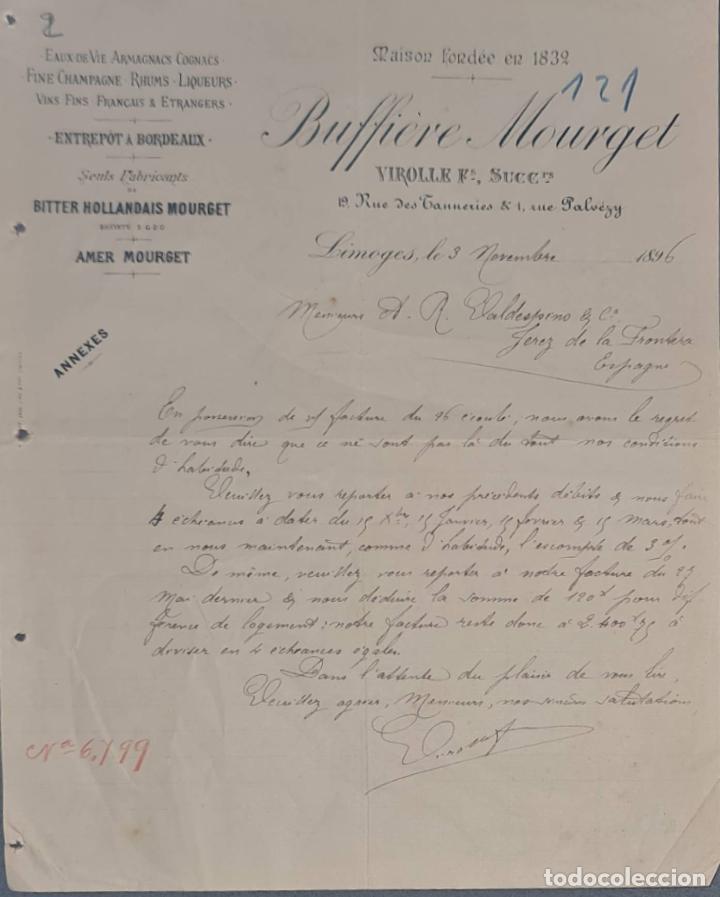 2
EAUX-DE-VIE ARMAGNACS COGNACS
FINE CHAMPAGNE · RHUMS · LIQUEURS
VINS FINS FRANÇAIS & ETRANGERS
ENTREPÔT A BORDEAUX
Seuls Fabricants
DE
BITTER HOLLANDAIS MOURGET
BREVETÉ S.G.D.G
AMER MOURGET
ANNEXES
Maison Fondée en 1832
121
Buffière Mourget
VIROLLE Fs, SUCCrs
19, Rue des Tanneries & 1, rue Palvézy
Limoges, le 3 Novembre 1896
Messieurs A. R. Valdespino & Co
Jerez de la Frontera
Espagne
En possession de v/ facture du 26 écoulé, nous avons le regret
de vous dire que ce ne sont pas là du tout nos conditions
d'habitude.
Veuillez vous reporter à nos précédents débits & nous faire
4 échéances à dater du 15 Xbre, 15 Janvier, 15 fevrier & 15 mars, tout
en nous maintenant, comme d'habitude, l'escompte de 3 %.
De même, veuillez vous reporter à notre facture du 27
Mai dernier & nous déduire la somme de 120 pour dif
férence de logement; notre facture reste donc à 2.400 75 à
diviser en 4 échéances égales.
Dans l'attente du plaisir de vous lire,
Veuillez agréer, Messieurs, nos sincères salutations
No 6.799
todocoleccion.net